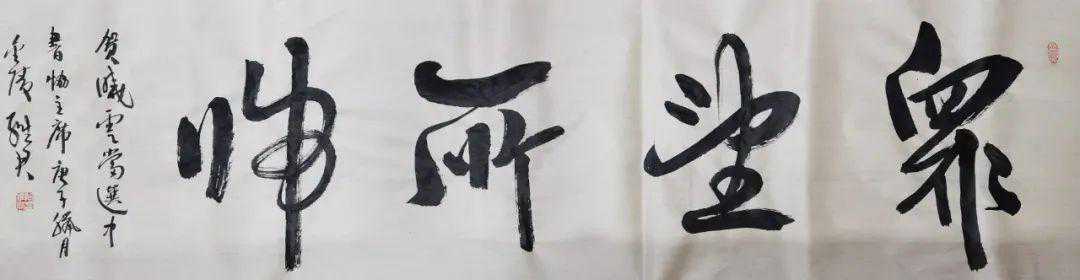 眾望所歸
賀曉雲當選中
書協主席庚子臘月
金陵